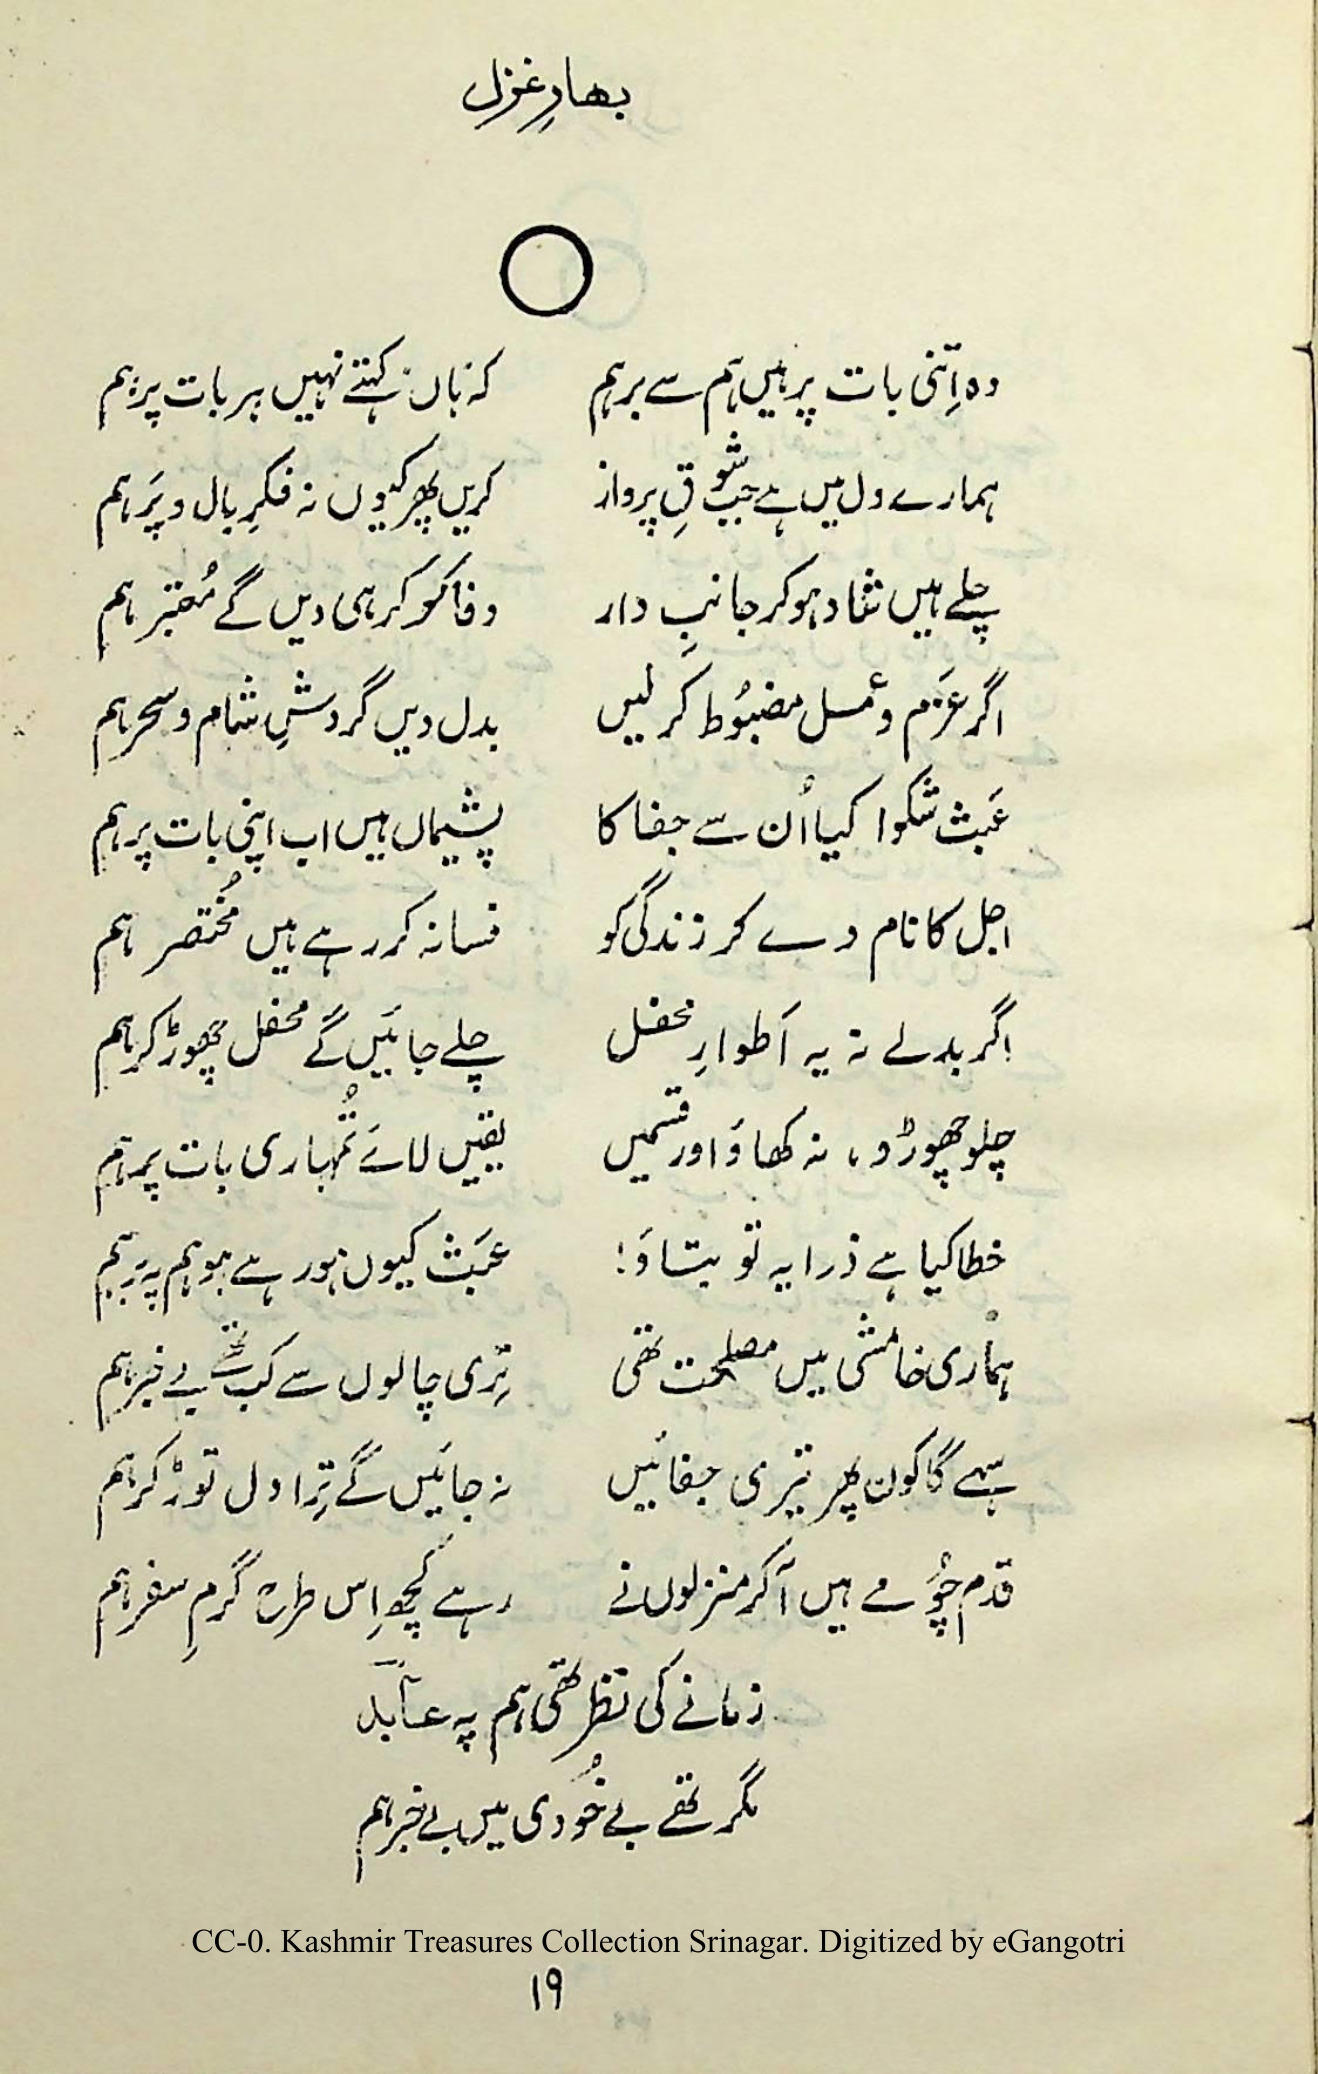 بھارِ غزل
وہ اِتنی بات پر ہیں ہم سے برہم کہ ہاں کہتے نہیں ہر بات پر ہم
ہمارے دل میں ہے جب شوقِ پرواز کریں پھر کیوں نہ فکرِ بال و پَر ہم
چلے ہیں شاد ہو کر جانبِ دار وفا کو کر ہی دیں گے مُعتبر ہم
اگر عَزم و عمل مضبُوط کر لیں بدل دیں گردشِ شام و سحر ہم
عَبث شکوا کیا اُن سے جفا کا پشیماں ہیں اب اپنی بات پر ہم
اجل کا نام دے کر زندگی کو فسانہ کر رہے ہیں مُختصر ہم
اگر بدلے نہ یہ اَطوارِ محفل چلے جائیں گے محفل چھوڑ کر ہم
چلو چھوڑو، نہ کھاؤ اور قسمیں یقیں لائے تُمہاری بات پر ہم
خطا کیا ہے ذرا یہ تو بتاؤ! عَبَث کیوں ہو رہے ہو ہم پہ برہم
ہماری خامشی میں مصلحت تھی تِری چالوں سے کب تھے بے خبر ہم
سہے گا کون پھر تیری جفائیں نہ جائیں گے تِرا دل توڑ کر ہم
قدم چُومے ہیں آکر منزلوں نے رہے کچھ اِس طرح گرمِ سفر ہم
زمانے کی نظر تھی ہم پہ عابد
مگر تھے بے خُودی میں بے خبر ہم
CC-0. Kashmir Treasures Collection Srinagar. Digitized by eGangotri
۱۹